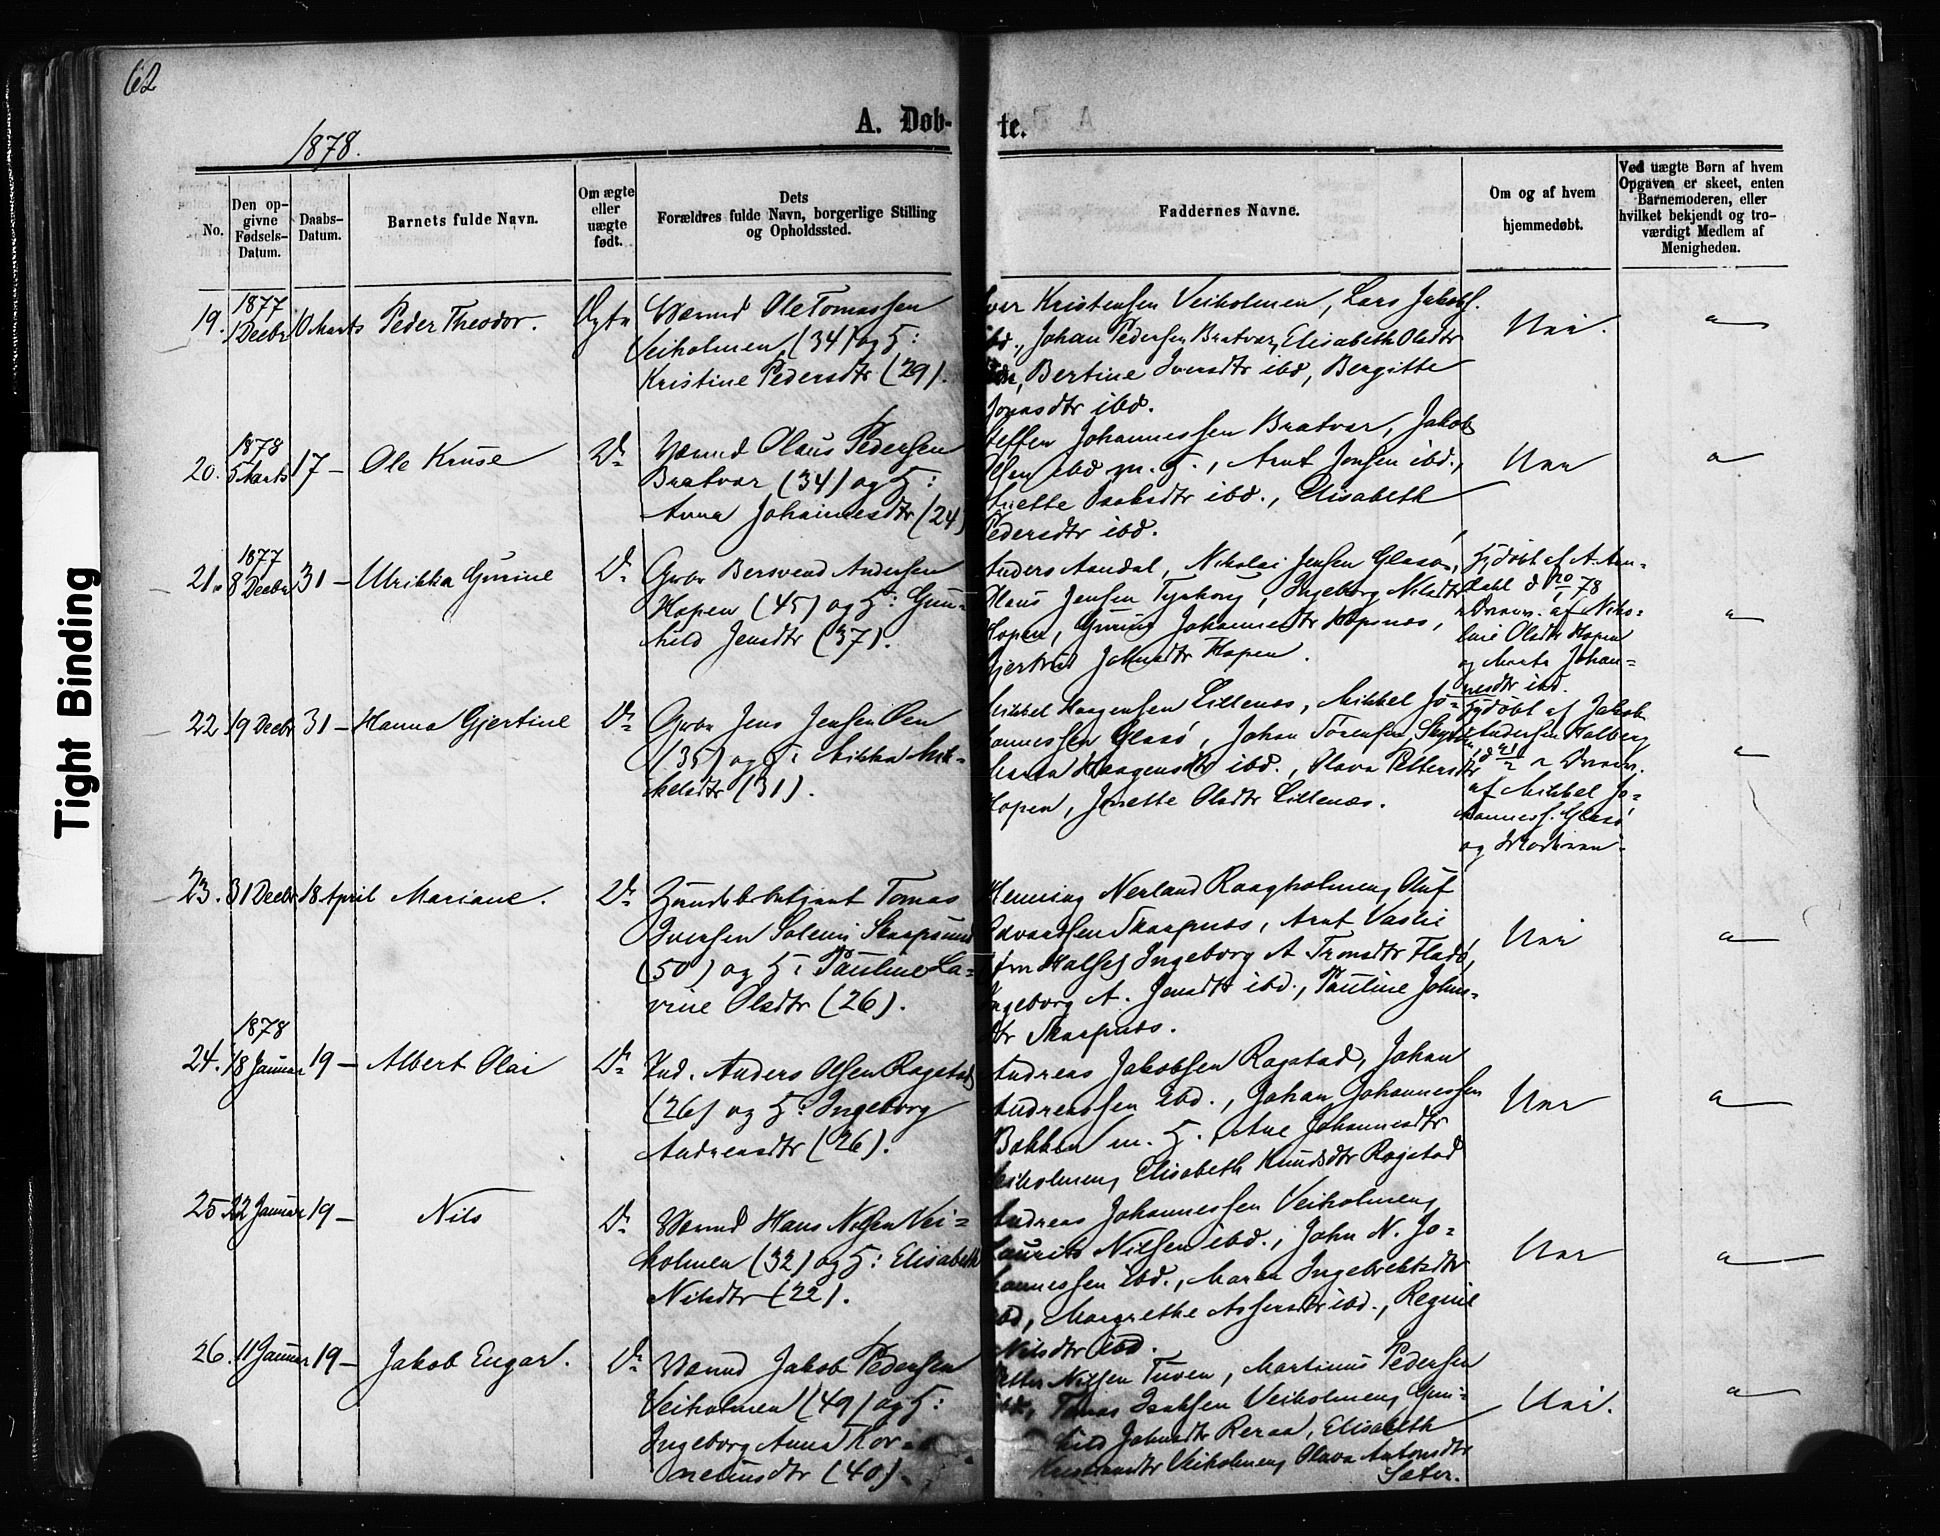 62
1878.
A. Døb-te.
No.
Den op-
givne
Fødsels-
Datum.
Daabs-
Datum.
Barnets fulde Navn.
Om ægte
eller
uægte
født.
Dets
Forældres fulde Navn, borgerlige Stilling
og Opholdssted.
Faddernes Navne.
Om og af hvem
hjemmedøbt.
Ved uægte Børn af hvem
Opgaven er skeet, enten
Barnemoderen, eller
hvilket bekjendt og tro-
værdigt Medlem af
Menigheden.
Tight Binding
19. 1877
1 Decbr 10 Marts Peder Theodor. Ægte
Ole Tomassen
Veiholmen (34) og H:
Kristine Pedersdtr (29).
Kristensen Veiholmen, Lars Jakobs.
ibd., Johan Pedersen Bratvær, Elisabeth Olsdtr
Bertine Iversdtr ibd, Bergitte
Jonasdtr ibd.
Nei. a
20. 1878
5 Marts 17 - Ole Kruse Do
Olaus Pedersen
Bratvær (34) og H:
Anna Johannesdtr (24)
Steffen Johannessen Bratvær, Jakob
Olsen ibd m. H., Arnt Jonsen ibd.,
Isaksdtr ibd., Elisabeth
Pedersdtr ibd.
Nei a
21. 1877
8 Decbr 31 - Ulrikka Gurine Do
Gbr Bersvend Andersen
Hopen (45) og H: Gun-
hild Jensdtr (37).
Anders Aandal, Nikolai Jensen Glasø,
Olaus Jensen Tynborg, Ingeborg Nilsdtr
Hopen, Gurine Johannesdtr Hopsnes,
Gjertrud Johnsdtr Hopen.
Hjdøbt af A. Aan-
dahl d 20/1 78
af Niko-
line Olsdtr Hopen
og Marta Johan-
nesdtr ibd.
a
22 19 Decbr 31 - Hanna Gjertine Do
Gbr Jens Jensen Øen
(35) og H: Mikka Mik-
kelsdtr (31).
Mikkel Haagensen Lillenes, Mikkel Jo-
hannessen Glasø, Johan Tørensen
Maria Haagensdtr ibd., Olava Pettersdtr
Hopen, Jonette Olsdtr Lillenæs.
Hjdøbt af Jakob
Andersen Holberg
af Mikkel Jo-
hanness. Glasø
og
a
23. 31 Decbr 18 April Mariane. Do
Tomas
Iversen Solemi Skarpsund
(50) og H: Pauline La-
vine Olsdtr (26).
Henning Nerland Raagholmen, Oluf
Edvardsen Skarpnes, Arnt Vaslie
Halse, Ingeborg A Tronsdtr Fladø,
Ingeborg A. Jensdtr ibd., Pauline Johns-
dtr Skarpnes.
Nei a
24. 1878
18 Januar 19 - Albert Olai Do
Ind. Anders Olsen Rogstad
(26) og H: Ingeborg
Andreasdtr (26).
Andreas Jakobsen Rogstad, Johan
Andreassen ibd., Johan Johannessen
Bakken m. H., Ane Johannesdtr
Veiholmen, Elisabeth Knudsdtr Rogstad
Nei a
25 22 Januar 19 - Nils Do
Hans Nilsen Vei-
holmen (32) og H: Elisabeth
Nilsdtr (22).
Andreas Johannessen Veiholmen,
Laurits Nilsen ibd., John N. Jo-
hannessen ibd., Maren Ingebrektsdtr
ibd, Margrethe Assersdtr ibd., Regine
Nilsdtr ibd.
Nei a
26. 11 Januar 19 - Jakob Engar. Do
Jakob Pedersen
Veiholmen (49) og H:
Ingeborg Anna Kor-
neliusdtr (40).
Petter Nilsen Tuven, Martinus Pedersen
ibd, Tomas Isaksen Veiholmen, Gun-
hild Johnsdtr Reraa, Elisabeth
Kristiansdtr Veiholmen, Olava Antonsdtr
Sæter.
Nei. a